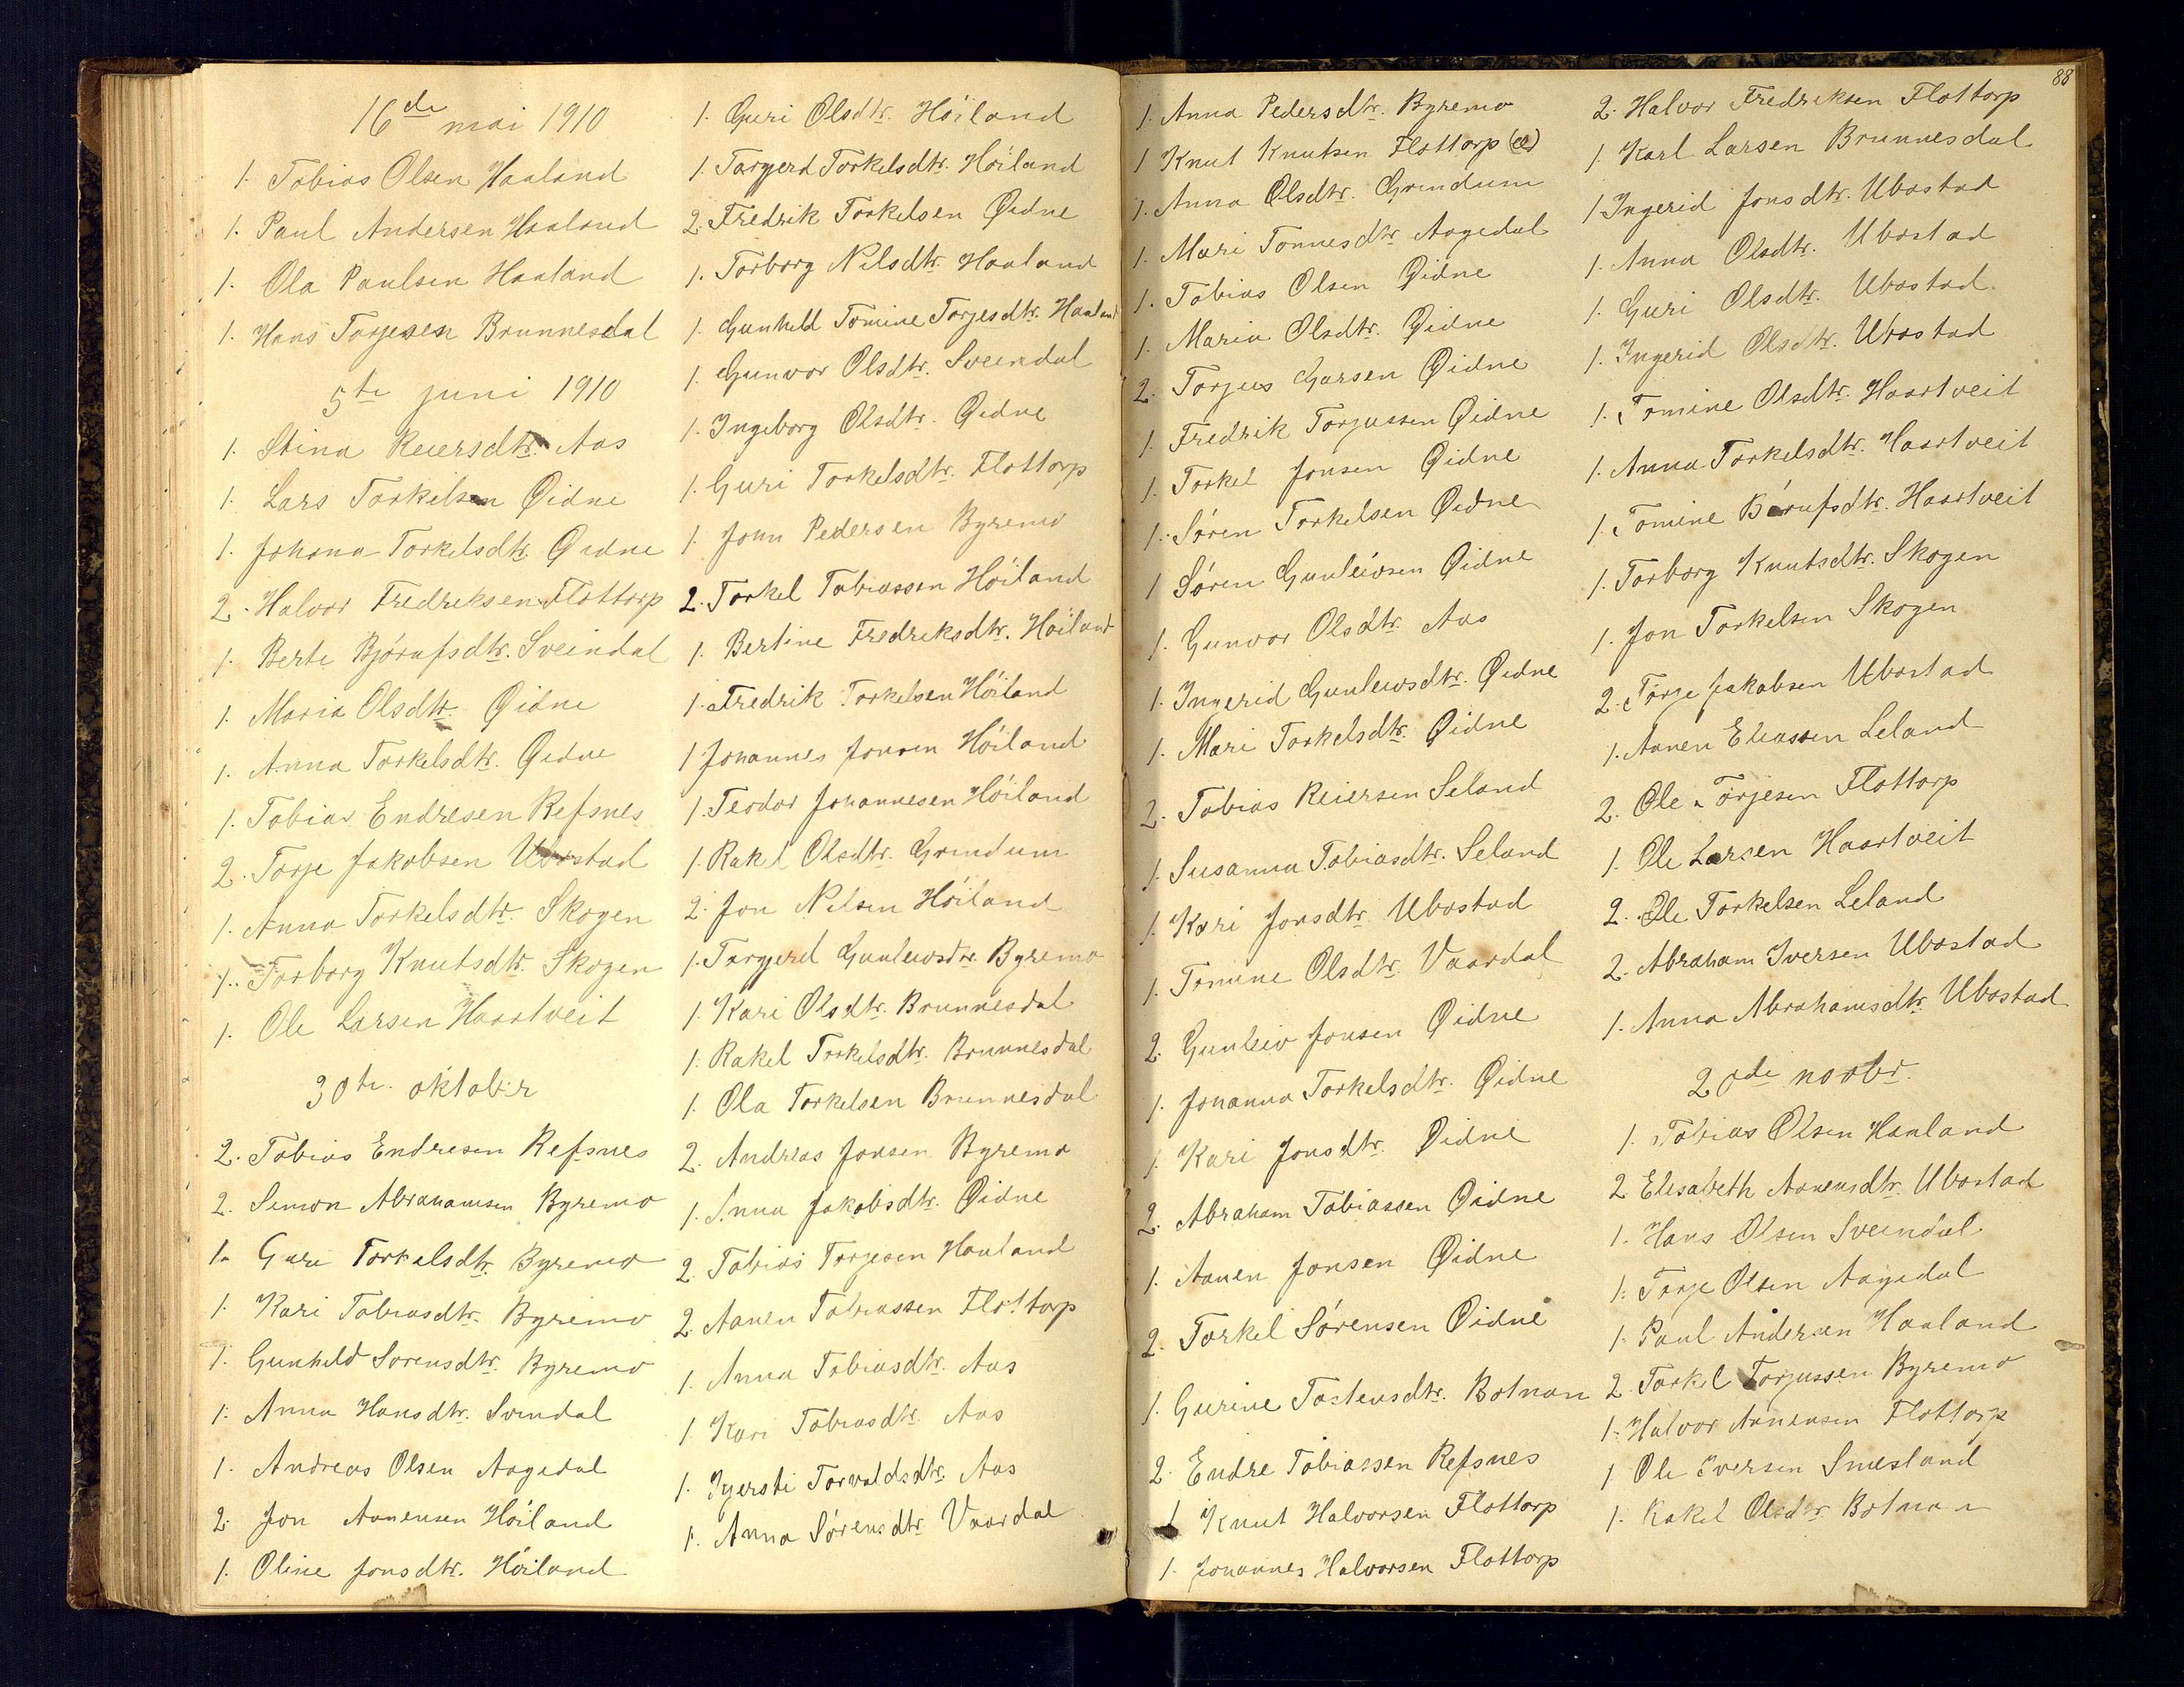 16de mai 1910
1. Tobias Olsen Haaland
1. Paul Andersen Haaland
1. Ola Paulsen Haaland
1. Hans Torjesen Brunnesdal
5te juni 1910
1. Stina Reiersdtr. Aas
1. Lars Torkelsen Øidne
1. Johana Torkelsdtr. Øidne
2. Halvor Fredriksen Flottorp
1. Berte Bjórufsdtr. Sveindal
1. Maria Olsdtr. Øidne
1. Anna Torkelsdtr. Øidne
1. Tobias Endresen Refsnes
2. Torje Jakobsen Ubostad
1. Anna Torkelsdtr. Skogen
1. Torborg Knutsdtr. Skogen
1. Ole Larsen Haartveit
30te. oktober
2. Tobias Endresen Refsnes
2. Simon Abrahamsen Byremo
1. Guri Torkelsdtr. Byremo
1. Kari Tobiasdtr. Byremo
1. Gunhild Sorensdtr. Byremo
1. Anna Hansdtr. Svindal
1. Andreas Olsen Aagedal
2. Jon Aanensen Höiland
1. Oline Jonsdtr. Höiland
1. Guri Olsdtr. Höiland
1. Targerd Torkelsdtr. Höiland
2. Fredrik Torkelsen Øidne
1. Torborg Nilsdtr. Haaland
1. Gunhild Tomine Torjesdtr. Haaland
1. Gunvor Olsdtr. Sveindal
1. Ingeborg Olsdtr. Øidne
1. Guri Torkelsdtr. Flottorp
1. John Pedersen Byremo
2. Torkel Tobiassen Höiland
1. Bertine Fredriksdtr. Höiland
1. Fredrik Torkelsen Höiland
1 Johannes Jonsen Höiland
1. Teodor Johannesen Höiland
1. Rakel Olsdtr. Grindum
2. Jon Nilsen Höiland
1. Torgjerd Gunleivsdtr. Byremo
1. Kari Olsdtr. Brunnesdal
1. Rakel Torkelsdtr. Brunnesdal
1. Ola Torkelsen Brunnesdal
2. Andreas Jonsen Byremo
1. Anna Jakobsdtr. Øidne
2. Tobias Torjesen Haaland
2. Aanen Tobiassen Flottorp
1. Anna Tobiasdtr. Aas
1. Kari Tobiasdtr. Aas
1. Torvaldsdtr. Aas
1. Anna Sórensdtr. Vaardal
88
1. Anna Pedersdtr. Byremo
1 Knut Knutsen Flottorp
1. Anna Olsdtr. Grindum
1. Mari Tonnesdtr. Aagedal
1. Tobias Olsen Øidne
1. Maria Olsdtr. Øidne
2. Torjus Garsen Øidne
1. Fredrik Torjussen Øidne
1. Torkel Jonsen Øidne
1. Sóren Torkelsen Øidne
1 Sóren Gunleivsen Øidne
1. Gunvor Olsdtr. Aas
1. Ingerid Gunleivsdtr. Øidne
1. Mari Torkelsdtr. Øidne
2. Tobias Reiersen Seland
1. Susanna Tobiasdtr. Seland
1. Kari Jonsdtr. Ubostad
1. Tomine Olsdtr. Vaardal
2. Gunleiv Jonsen Øidne
1. Johanna Torkelsdtr. Øidne
1. Kari Jonsdtr. Øidne
2. Abraham Tobiassen Øidne
1. Aanen Jonsen Øidne
2. Torkel Sórensen Øidne
1. Gurine Tostensdtr. Botnan
2. Endre Tobiassen Refsnes
1 Knut Halvorsen Flottorp
1. Johannes Halvorsen Flottorp
2. Halvor Fredriksen Flottorp
1. Karl Larsen Brunnesdal
1 Ingerid Jonsdtr. Ubostad
1. Anna Olsdtr. Ubostad
1. Guri Olsdtr. Ubostad
1. Ingerid Olsdtr. Ubostad
1. Tomine Olsdtr. Haartveit
1. Anna Torkelsdtr. Haartveit
1. Tomine Bórufsdtr. Haartveit
1. Torborg Knutsdtr. Skogen
1. Jon Torkelsen Skogen
2. Torje Jakobsen Ubostad
1. Aanen Eliassen Leland
2. Ole Torjesen Flottorp
1. Ole Larsen Haartveit
2. Ole Torkelsen Leland
2. Abraham Iversen Ubostad
1. Anna Abrahamsdtr. Ubostad
20de novbr.
1. Tobias Olsen Haaland
2 Elisabeth Aanensdtr. Ubostad
1. Hans Olsen Sveindal
1. Torje Olsen Aagedal
1. Paul Andersen Haaland
2. Torkel Torjussen Byremo
1. Halvor Aanensen Flottorp
1. Ole Iversen Smesland
1. Rakel Olsdtr. Botnan